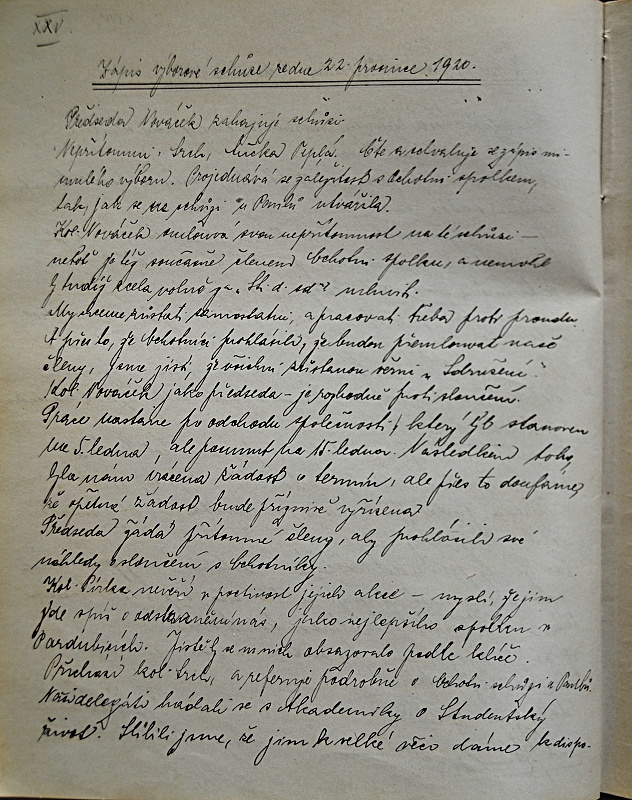 XXV.
Zápis výborové schůze ze dne 22. prosince 1920.
Předseda Nováček zahajuje schůzi.
Nepřítomni: Srch, Lučka Pepla. Čte a schvaluje se zápis mi-
nulého výboru. Projednává se záležitost s Ochotn. spolkem,
tak, jak se na schůzi "u Paulů" utvářila.
Kol. Nováček omlouvá svou nepřítomnost na té schůzi –
neboť je též současně členem Ochotn. spolku, a nemohl
by tudíž zcela volně za "St. d. sd" mluviti.
My chceme zůstati samostatni, a pracovati třeba proti proudu.
A přes to, že Ochotníci prohlásili, že budou přemlouvat naše
členy, jsme jisti, že všichni zůstanou věrni "Sdružení".
Kol. Nováček jako předseda – je rozhodně proti sloučení.
Práce nastane po odchodu společnosti, který byl stanoven
na 5. ledna, ale posunut na 15. ledna. Následkem toho
byla nám vrácena žádost o termín, ale přes to doufáme,
že opětná žádost bude příznivě vyřízena.
Předseda žádá přítomné členy, aby prohlásili své
náhledy o sloučení s Ochotníky.
Kol. Pírka nevěří v poctivost jejich akce – myslí, že jim
jde spíš o odstranění nás, jako nejlepšího spolku v
Pardubicích. Jistě by se v nich obsazovalo podle klíče.
Přichází kol. Srch, a referuje podrobně o Ochotn. schůzi u Paulů.
Naši delegáti hádali se s Akademiky o Studentský
život. Slíbili jsme, že jim k velké věci dáme k dispo-